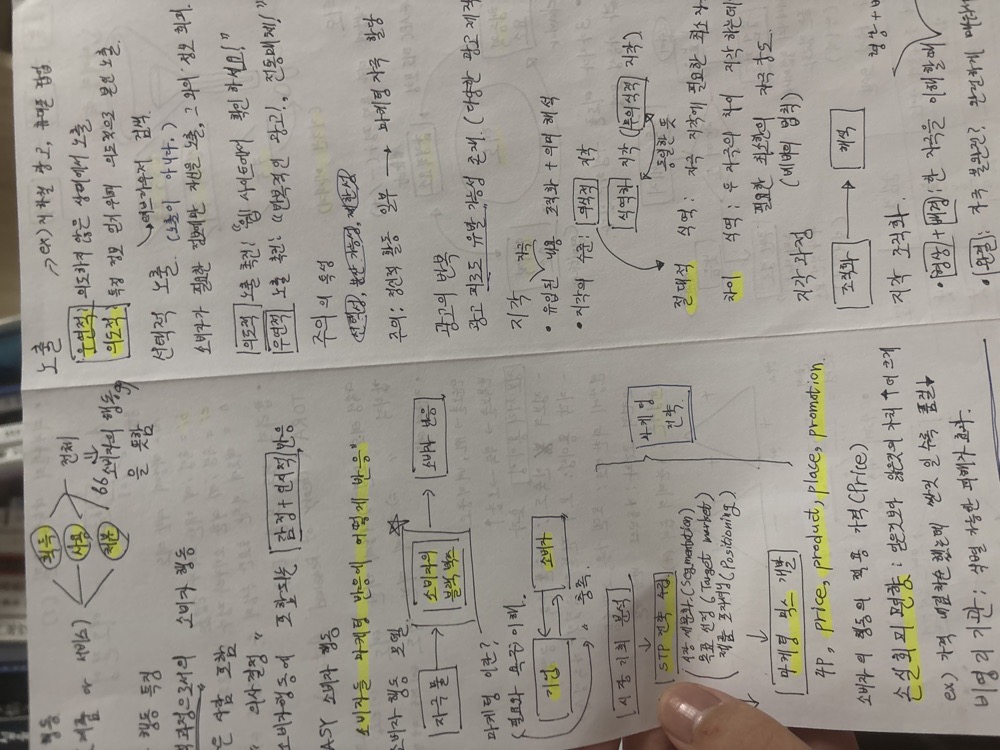 행동
제품 이 서비스)
획득
사용
처분
전체
66 소비자의 행동
을 뜻함
행동 특징
소비자 행동
은 사람 포함
"의사결정"
소비자행동에 포함되는 감정+인지적 반응
EASY 소비자 행동
소비자들 마케팅 반응에 어떻게 반응?
소비자 행동 모델
자극물
소비자의
블랙 박스
소비자 반응
마케팅 이란?
(필요와 욕구 이해.
기업
소비자
충족.
시장 기회 분석
STP 전략 수립
시장 세분화(Segmentation)
목표 선정(Target market)
제품 포지셔닝(Positioning)
마케팅
전략
마케팅 믹스 개발
4P, price, product, place, promotion
소비자의 행동의 적용 가격(Price)
손실회피편향: 얻은것보다 잃은것의 가치↑ 더 크게
ex) 가격 비교하면 했는데 싼것 일 수록 품질↓
비영리 기관: 식별 가능한 피해자 효과.
노출
→ex) 지하철 광고, 휴대폰 팝업
우연적: 의도하지 않은 상태에서 노출
의도적: 특정 정보 얻기위해 의도적으로 본인 노출.
→여드기우제 검색
선택적 노출. (노출이 아니다.)
소비자가 필요한 정보에만 자신을 노출, 그 외의 정보 회피.
의도적 노출 촉진: "웹 사이트에서 확인 하세요!"
우연적 노출 촉진: "반복적인 광고!, 전통매체!"
주의의 특성
선택성, 분산 가능성, 제한성
주의: 정신적 활동 일부 → 마케팅자극 할당
광고의 반복
광고 피로도 유발 가능성 존재. (다양한 광고 제작
지각
자극
• 유입된 내용 조직화 + 의미 해석
• 지각의 수준: 의식적 지각
식역하 지각 (무의식적 지각)
동일한 뜻
절대적 식역: 자극 지각에 필요한 최소 자
차이 식역: 두 자극의 차이 지각 하는데
필요한 최소한의 자극 강도.
(웨버의 법칙)
지각과정
조직화 → 해석
지각 조직화.
형상+배
• 형상+배경: 한 자극을 이해할때
• 완결: 자극 불완전? 완전하게 메꾼다